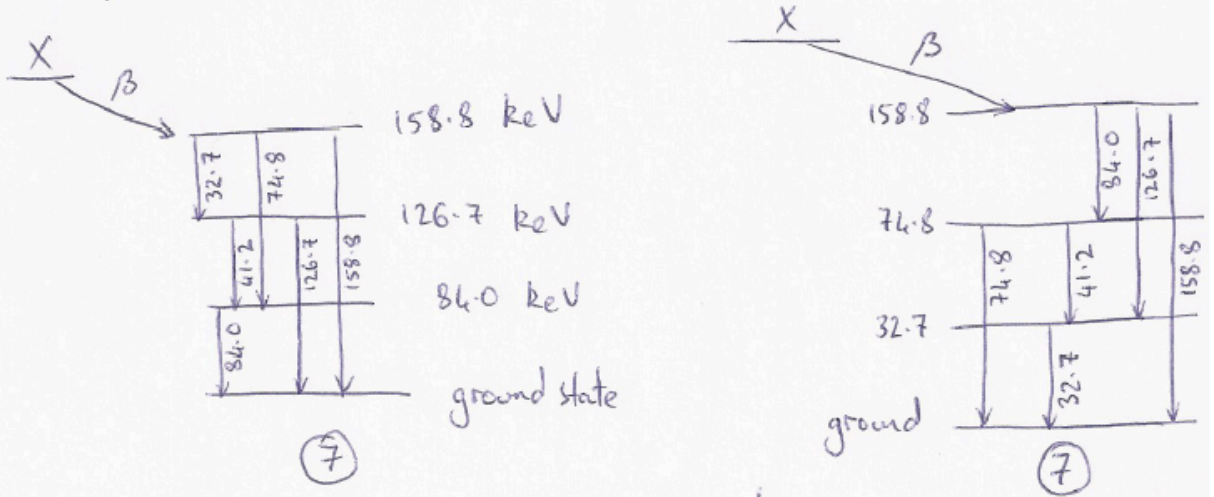 X
β
158.8 keV
32.7
74.8
126.7 keV
41.2
126.7
158.8
84.0 keV
84.0
ground state
7
X
β
158.8
84.0
126.7
74.8
74.8
41.2
158.8
32.7
32.7
ground
7